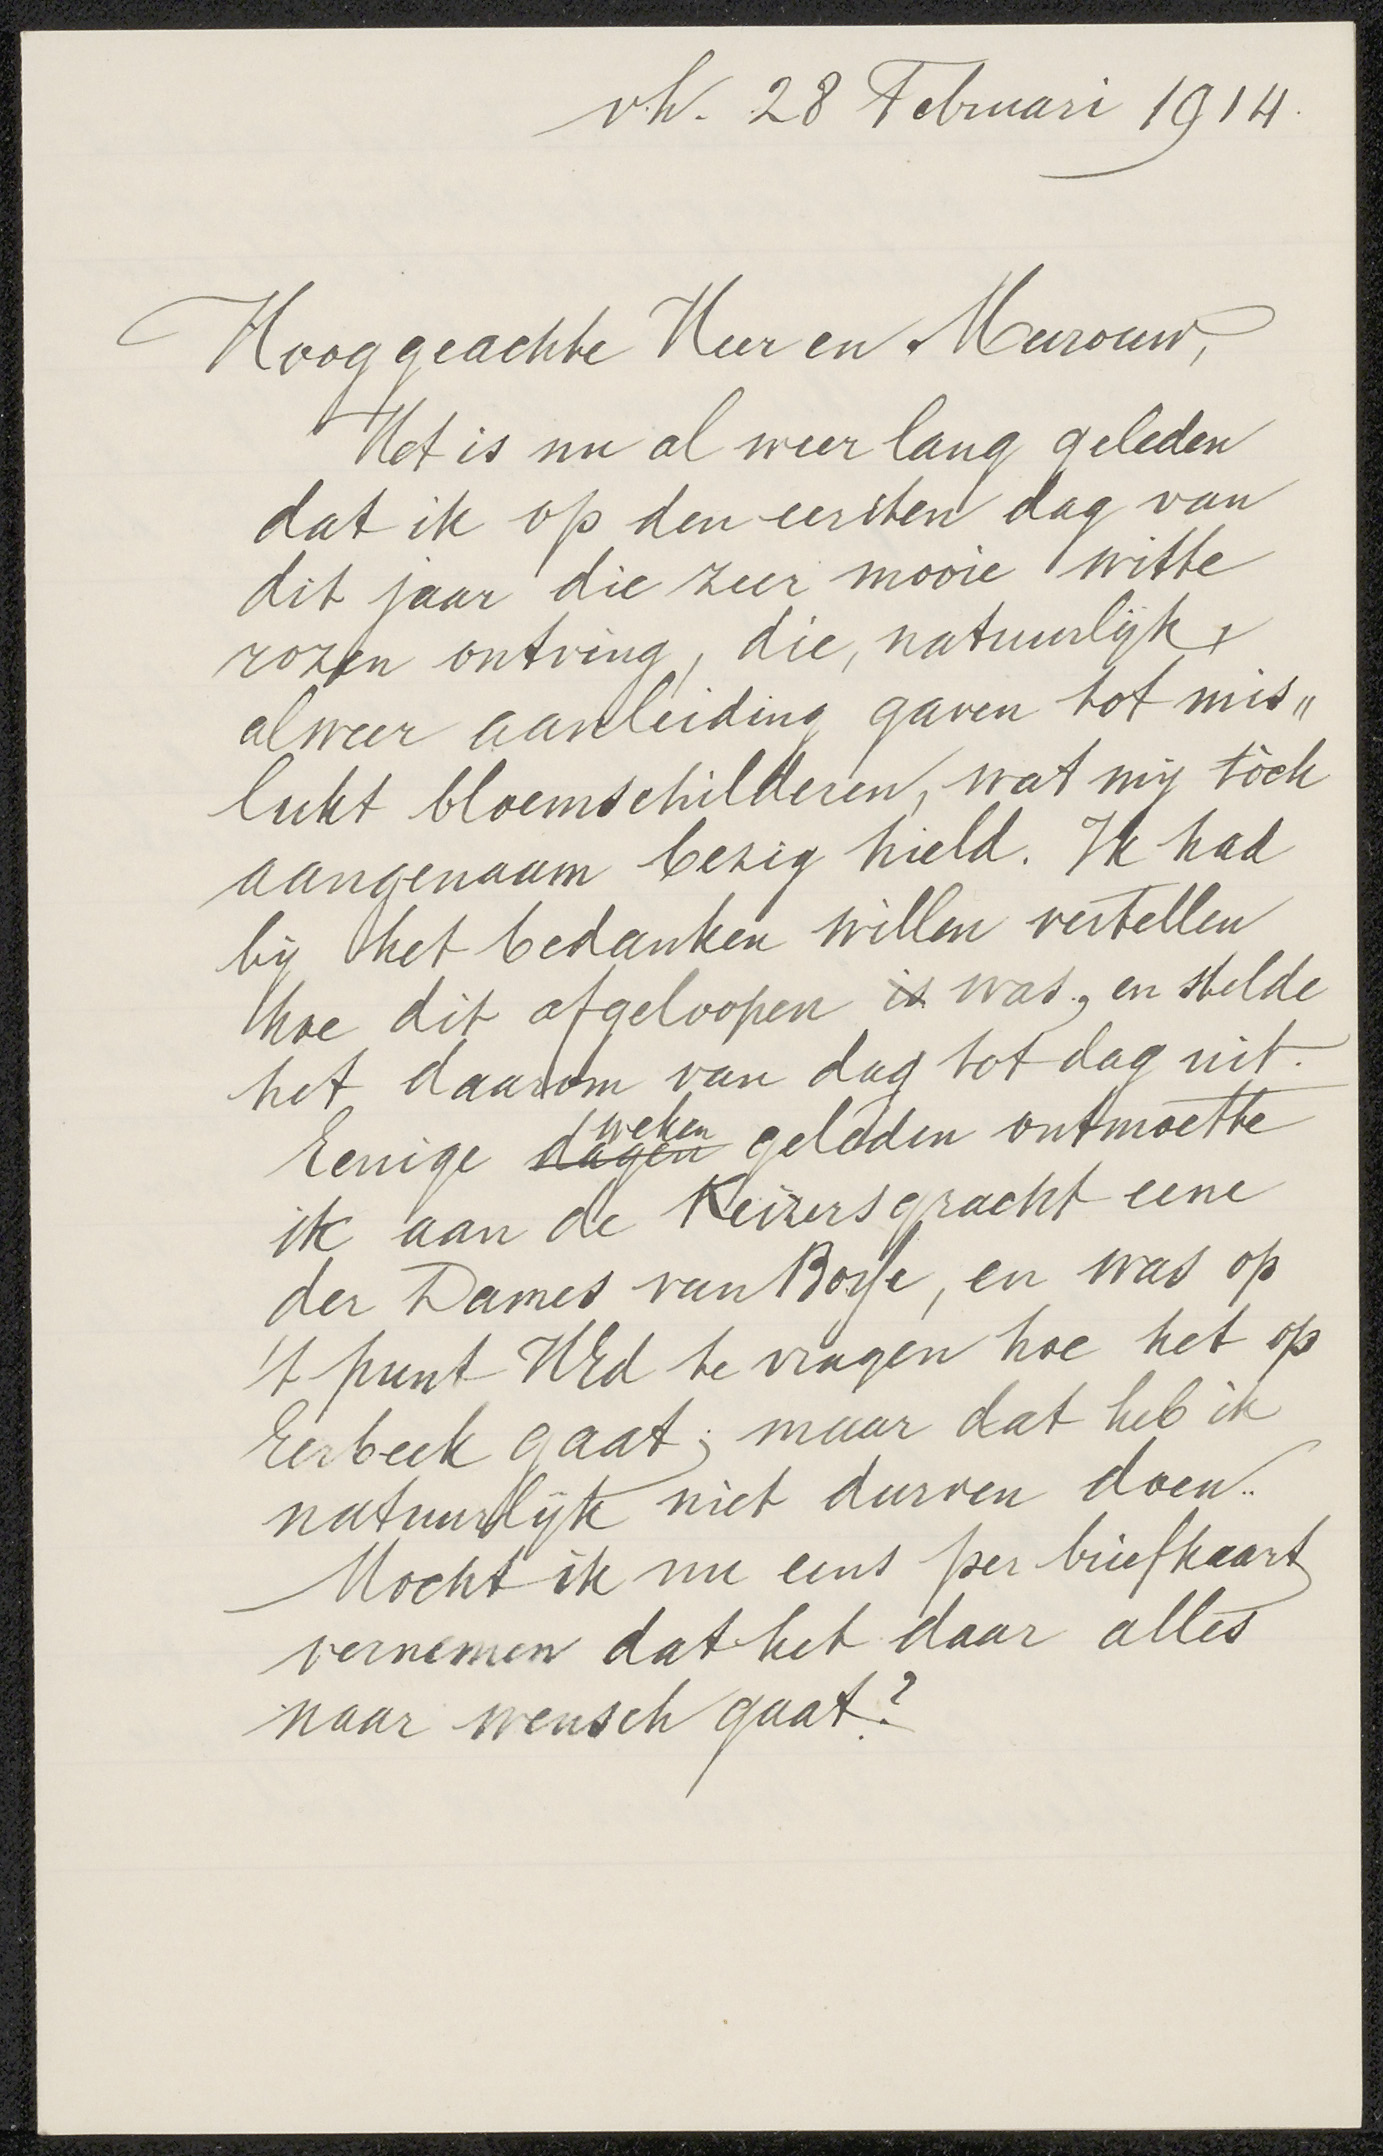 v.h. 28 Februari 1914.
Hooggeachte Heer en Mevrouw,
Het is nu al weer lang geleden
dat ik op den eersten dag van
dit jaar die zeer mooie witte
rozen ontving, die, natuurlijk,
alweer aanleiding gaven tot mis„
lukt bloemschilderen, wat mij tòch
aangenaam bezig hield. Ik had
bij het bedanken willen vertellen
hoe dit afgeloopen is was, en stelde
het daarom van dag tot dag uit.
Eenige dagen weken geleden ontmoette
ik aan de Keizersgracht eene
der Dames van
, en was op
't punt HEd te vragen hoe het op
Eerbeek gaat; maar dat heb ik
natuurlijk niet durven doen.
Mocht ik nu eens per briefkaart
vernemen dat het daar alles
naar wensch gaat?